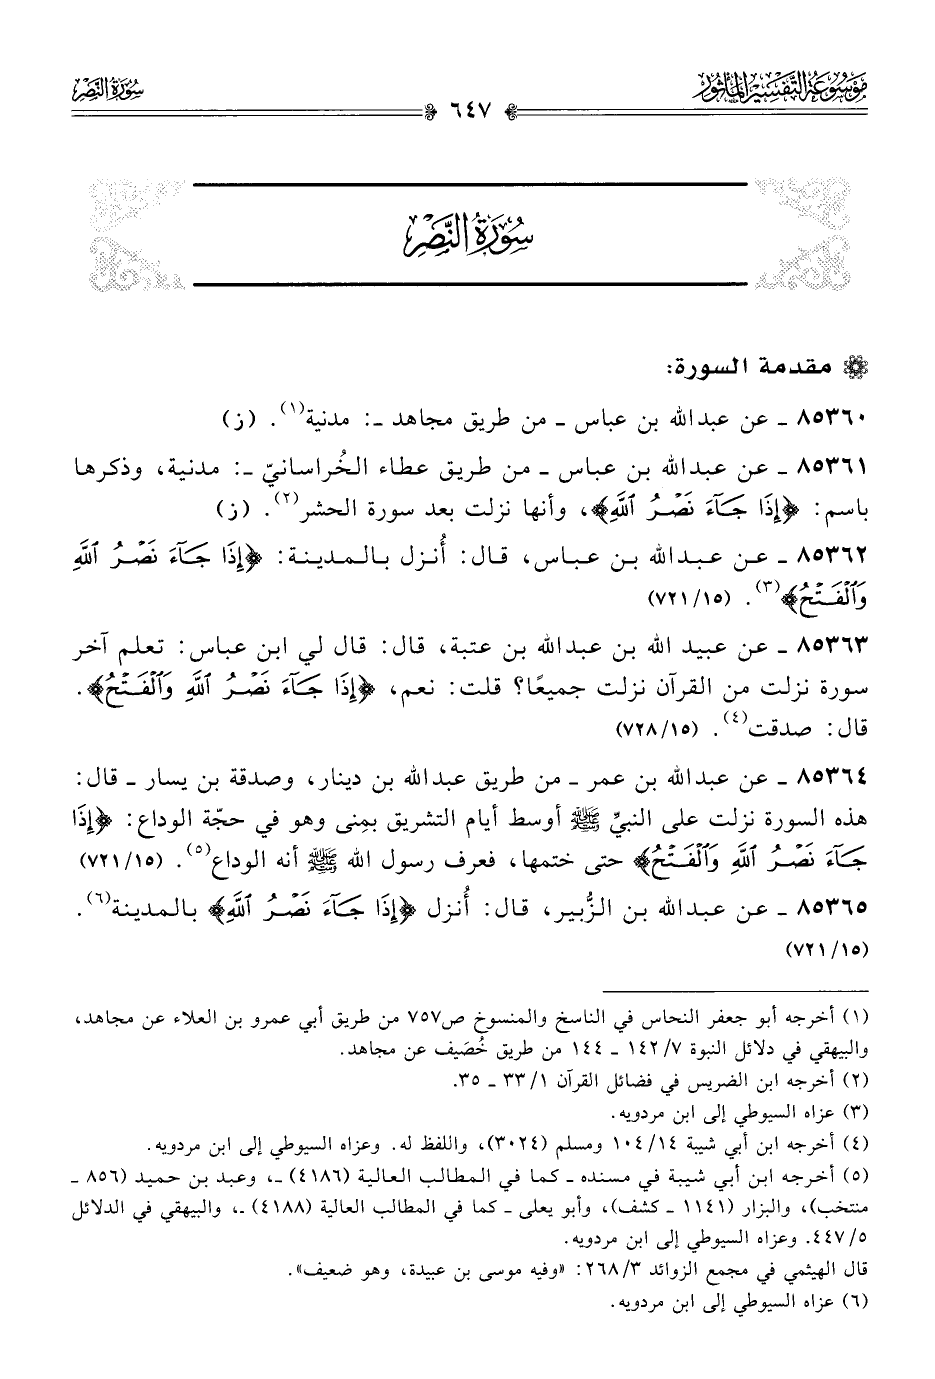 موسوعة التفسير المأثور
سورة النصر
٦٤٧
سورة النصر
مقدمة السورة:
٨٥٣٦٠ ـ عن عبدالله بن عباس ـ من طريق مجاهد ـ: مدنية(١). (ز)
٨٥٣٦١ ـ عن عبدالله بن عباس ـ من طريق عطاء الخُراسانيّ ـ: مدنية، وذكرها
باسم: ﴿إِذَا جَآءَ نَصْرُ ٱللَّهِ﴾، وأنها نزلت بعد سورة الحشر(٢). (ز)
٨٥٣٦٢ ـ عن عبدالله بن عباس، قال: أُنزل بالمدينة: ﴿إِذَا جَآءَ نَصْرُ ٱللَّهِ
وَٱلْفَتْحُ﴾(٣). (٧٢١/١٥)
٨٥٣٦٣ ـ عن عبيد الله بن عبدالله بن عتبة، قال: قال لي ابن عباس: تعلم آخر
سورة نزلت من القرآن نزلت جميعًا؟ قلت: نعم، ﴿إِذَا جَآءَ نَصْرُ ٱللَّهِ وَٱلْفَتْحُ﴾.
قال: صدقت(٤). (٧٢٨/١٥)
٨٥٣٦٤ ـ عن عبدالله بن عمر ـ من طريق عبدالله بن دينار، وصدقة بن يسار ـ قال:
هذه السورة نزلت على النبيِّ ﷺ أوسط أيام التشريق بمِنى وهو في حجّة الوداع: ﴿إِذَا
جَآءَ نَصْرُ ٱللَّهِ وَٱلْفَتْحُ﴾ حتى ختمها، فعرف رسول الله ﷺ أنه الوداع(٥). (٧٢١/١٥)
٨٥٣٦٥ ـ عن عبدالله بن الزُّبير، قال: أُنزل ﴿إِذَا جَآءَ نَصْرُ ٱللَّهِ﴾ بالمدينة(٦).
(٧٢١/١٥)
(١) أخرجه أبو جعفر النحاس في الناسخ والمنسوخ ص٧٥٧ من طريق أبي عمرو بن العلاء عن مجاهد،
والبيهقي في دلائل النبوة ١٤٢/٧ ـ ١٤٤ من طريق خُصَيف عن مجاهد.
(٢) أخرجه ابن الضريس في فضائل القرآن ٣٣/١ ـ ٣٥.
(٣) عزاه السيوطي إلى ابن مردويه.
(٤) أخرجه ابن أبي شيبة ١٠٤/١٤ ومسلم (٣٠٢٤)، واللفظ له. وعزاه السيوطي إلى ابن مردويه.
(٥) أخرجه ابن أبي شيبة في مسنده ـ كما في المطالب العالية (٤١٨٦) ـ، وعبد بن حميد (٨٥٦ ـ
منتخب)، والبزار (١١٤١ ـ كشف)، وأبو يعلى ـ كما في المطالب العالية (٤١٨٨) ـ، والبيهقي في الدلائل
٤٤٧/٥. وعزاه السيوطي إلى ابن مردويه.
قال الهيثمي في مجمع الزوائد ٢٦٨/٣: «وفيه موسى بن عبيدة، وهو ضعيف».
(٦) عزاه السيوطي إلى ابن مردويه.